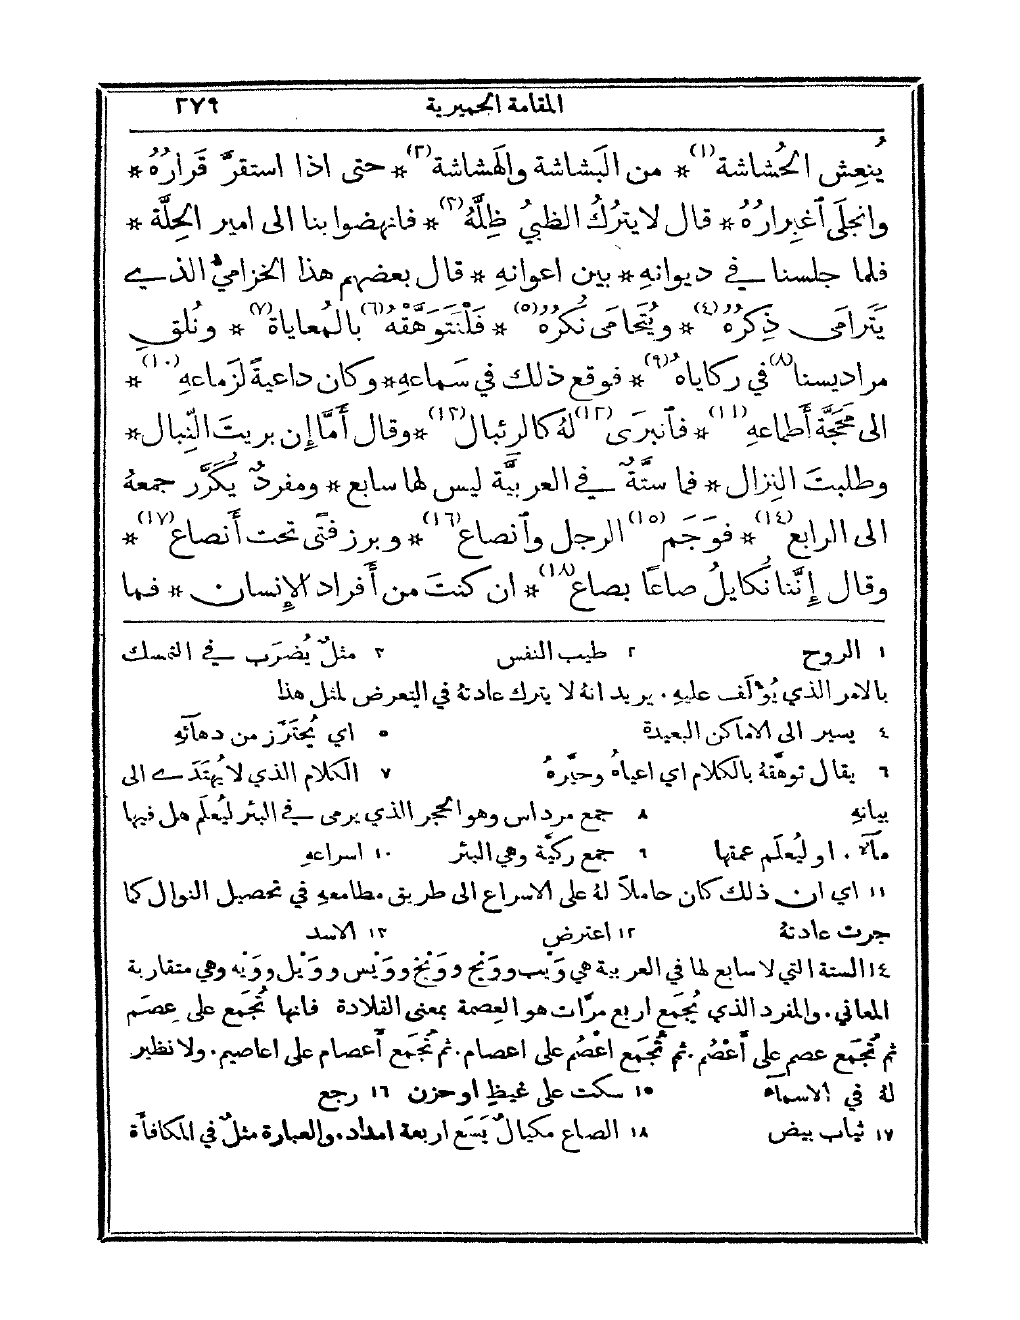 المقامة الحميرية ٢٧٩
يُنعِش الحُشاشة(١)* من البَشاشة والهَشاشة(٢)* حتى اذا استقرَّ قَرارُهُ *
وانجلَى ٱغبِرارُهُ * قال لا يترُكُ الظبيُ ظِلَّهُ(٣)* فانهضوا بنا الى امير الحِلَّة *
فلما جلسنا في ديوانهِ * بين اعوانهِ * قال بعضهم هذا الخزاميُّ الذي
يَترامَى ذِكرُهُ(٤)* ويُتحامَى نُكرُهُ(٥)* فَلْنَتَوَهَّقهُ(٦) بالمُعاياة(٧)* ونُلقِ
مراديسنا(٨) في ركاياهُ(٩)* فوقع ذلك في سَماعهِ * وكان داعيةً لزَماعهِ(١٠)*
الى مَحَجَّة أَطماعهِ(١١)* فٱنبرَى(١٢) لهُ كالرِئبال(١٣)* وقال أَمَّا إِن بريتَ النِّبال *
وطلبتَ النِزال * فما ستَّةٌ في العربيَّة ليس لها سابع * ومفردٌ يُكرَّر جمعهُ
الى الرابع(١٤)* فوَجَم(١٥) الرجل وٱنصاع(١٦)* وبرز فتًى تحت أَنصاع(١٧)*
وقال إِنَّنا نُكايلُ صاعًا بصاع(١٨)* ان كنتَ من أَفراد الإِنسان * فما
١ الروح ٢ طيب النفس ٣ مثلٌ يُضرَب في التمسك
بالامر الذي يُؤلَف عليهِ. يريد انهُ لا يترك عادتهُ في التعرض لمثل هذا
٤ يسير الى الاماكن البعيدة ٥ اي يُحترَز من دهآئهِ
٦ يقال توهَّقهُ بالكلام اي اعياهُ وحيَّرهُ ٧ الكلام الذي لا يُهتدَى الى
بيانهِ ٨ جمع مرداس وهو الحجر الذي يرمى في البئر ليُعلَم هل فيها
مآء. او ليُعلَم عمقها ٩ جمع ركيَّة وهي البئر ١٠ اسراعهِ
١١ اي ان ذلك كان حاملاً لهُ على الاسراع الى طريق مطامعهِ في تحصيل النوال كما
جرت عادتهُ ١٢ اعترض ١٣ الاسد
١٤ الستة التي لا سابع لها في العربية هي وَيْب ووَيْح ووَيْخ ووَيْس ووَيْل ووَيْه وهي متقاربة
المعاني. والمفرد الذي يُجمَع اربع مرَّات هو العِصمة بمعنى القلادة فانها تُجمَع على عِصَم
ثم تُجمَع عصم على أَعْصُم. ثم تُجمَع اعْصُم على اعصام. ثم تُجمَع أَعصام على اعاصيم. ولا نظير
لهُ في الاسمآء ١٥ سكت على غيظٍ او حزن ١٦ رجع
١٧ ثياب بيض ١٨ الصاع مكيالٌ يَسَع اربعة امداد. والعبارة مثلٌ في المكافأَة